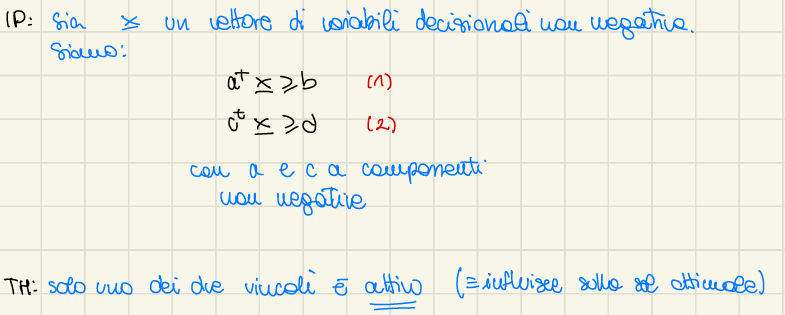 IP: Sia x un vettore di variabili decisionali non negative.
Siano:
aᵗ x ≥ b (1)
cᵗ x ≥ d (2)
con a e c a componenti
non negative
TH: solo uno dei due vincoli è attivo (≡ influisce sulla sol ottimale)